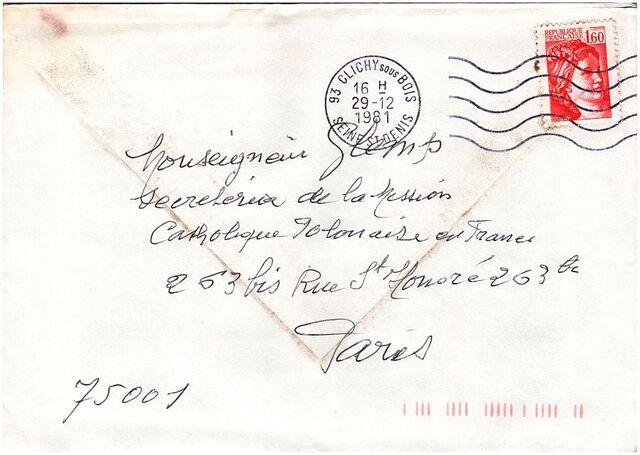 REPUBLIQUE FRANCAISE 1,60
93 CLICHY sous BOIS
16 H
29-12
1981
SEINE ST DENIS
Monseigneur Glemp
Secrétérier de la Mission
Catholique Polonaise en France
263 bis Rue St Honoré 263 bis
Paris
75001